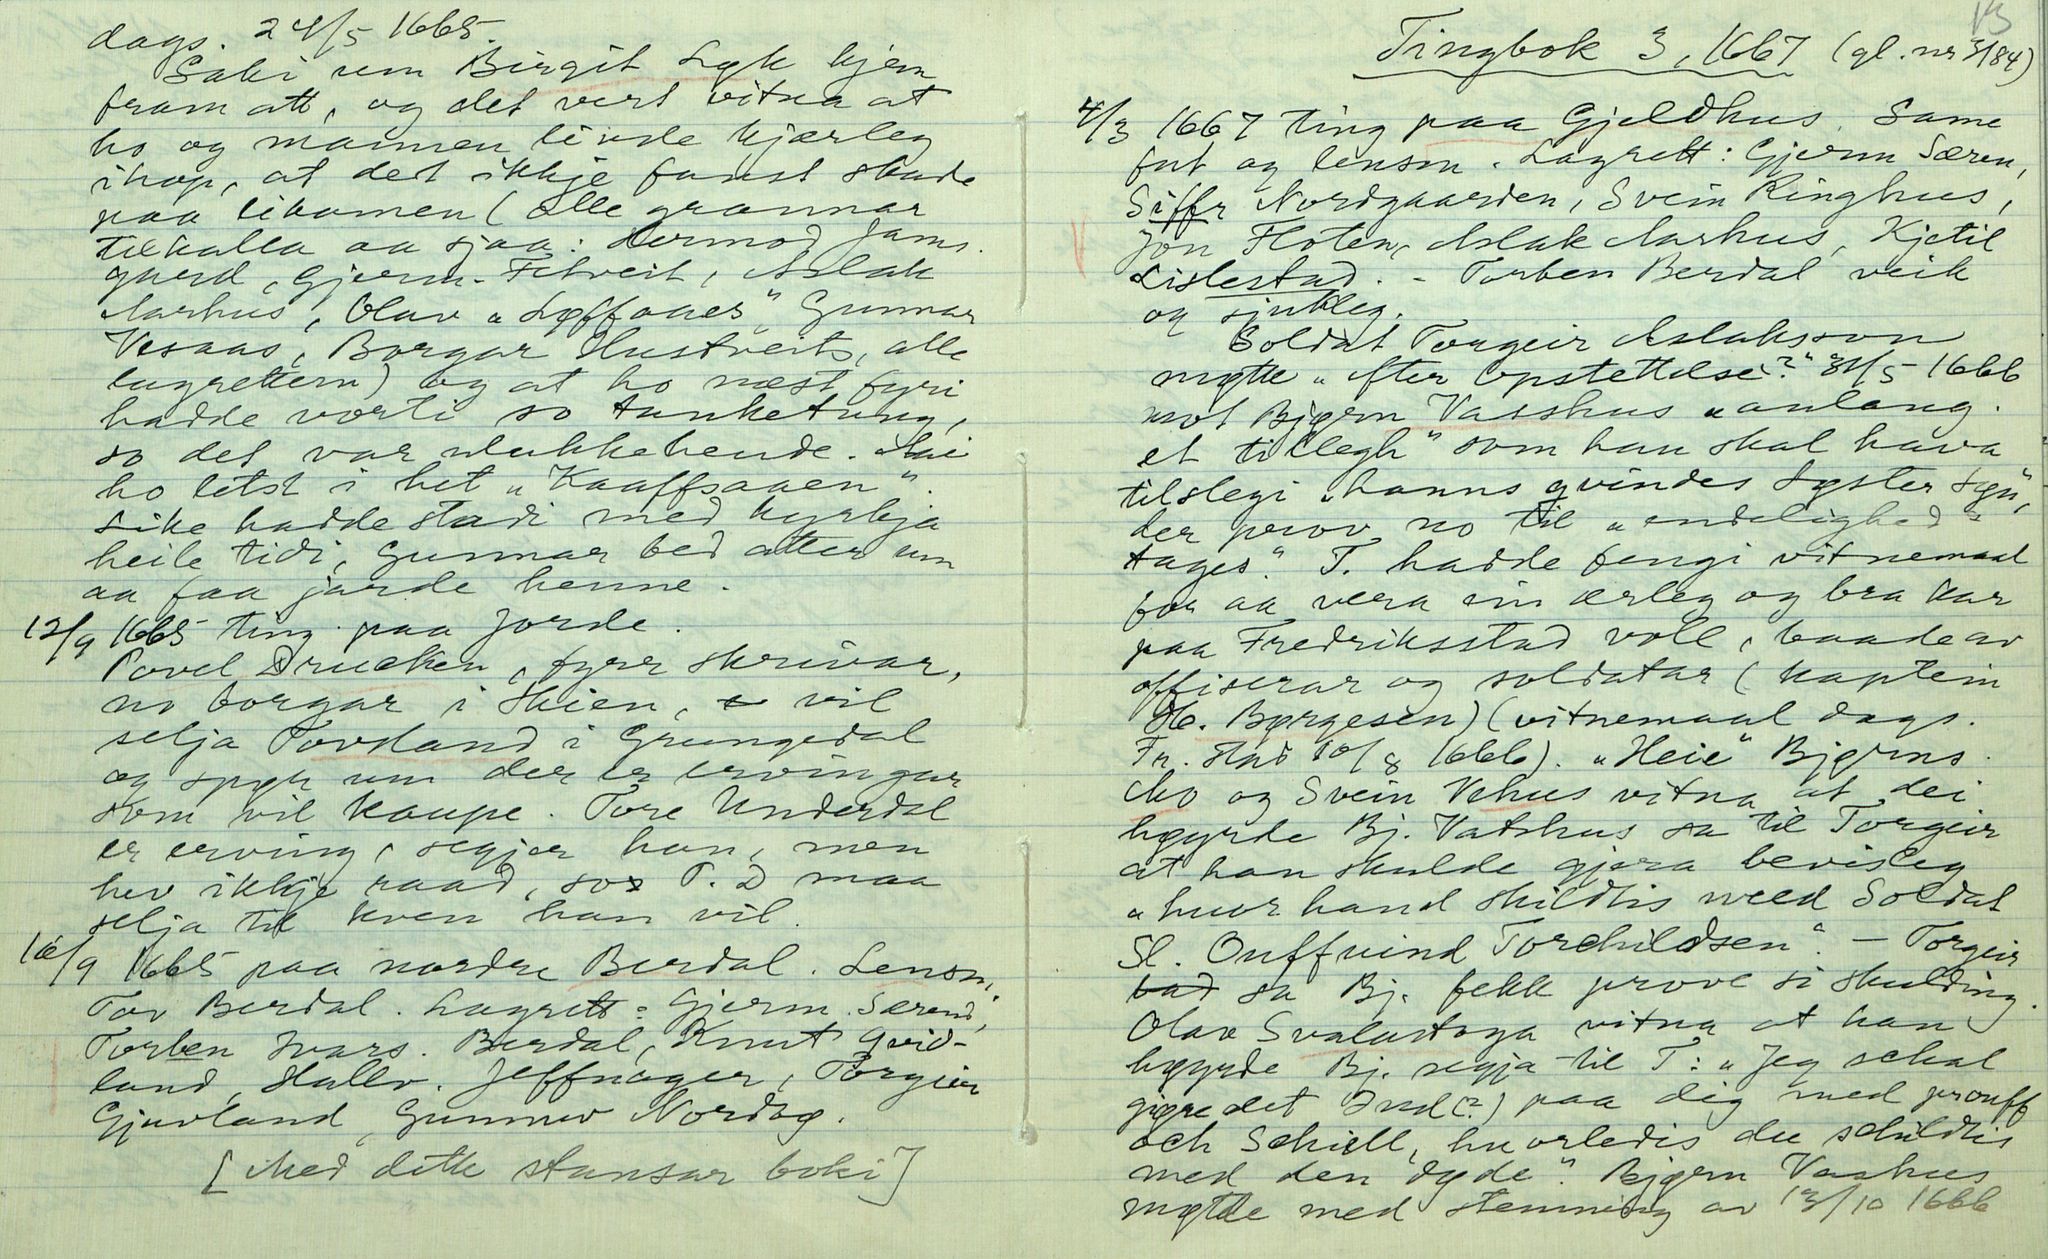 dags. 24/5 1665.
Saki um Birgit Lyk kjem
fram att, og det vert vitna at
ho og mannen livde kjærleg
ihop, at det ikkje fanst skade
paa likamen (alle grannar
tilkalla aa sjaa: Aamod Jams-
gaard, Gjerm. Fitveit, Aslak
Aarhus, Olav „Løffaaes" Gunnar
Vesaas, Borgar Hustveit, alle
lagrettem) og at ho næst fyri
hadde vorti so tanketung,
so det var ulukkehende. Mai
ho letst i het „Kaaffsaaen".
Like hadde stadi med kyrkja
heile tidi, Gunnar bed atter um
aa faa jorde henne.
12/9 1665 ting paa Jorde.
Povel Drucken, fyrr skrivar,
no borgar i Skien, vil
selja Tovsland i Grungedal
og spyr um der er ervingar
som vil kaupe. Tore Underdal
er erving, segjer han, men
hev ikkje raad, so P. D maa
selja til kven han vil.
16/9 1665 paa nordre Berdal. Lensm.
Tov Berdal. Lagrett: Gjerm. Særend,
Torben Ivars. Berdal, Knut Qvid-
land, Hallv. Jeffnager, Torgeir
Gjuvland, Gunnuv Nordbø.
[Med dette stansar boki]
13
Tingbok 3, 1667 (gl. nr 3/84)
4/3 1667 ting paa Gjeldhus. Same
fut og lensm. Lagrett: Gjerm Særen,
Siffr Nordgaarden, Svein Ringhus,
Jon Floten, Aslak Aarhus, Kjetil
Lislestad. - Torben Berdal veik
og sjukleg.
Soldat Torgeir Aslaksson
møtte „efter Opstettelse?" 31/5 1666
mot Bjørn Vasshus „anlang.
et tillegh" som han skal hava
tilslegi „hanns qvindes Syster Søn",
der prov no til „endelighed
tages." T. hadde fengi vitnemaal
for aa vera ein ærleg og bra kar
paa Fredriksstad voll, baade av
offiserar og soldatar (kaptein
H. Børgesen) (vitnemaal dags.
Fr. stad 10/8 1666). „Heie" Bjørns.
Mo og Svein Vehus vitna at dei
høyrde Bj. Vatshus sa til Torgeir
at han skulde gjera bevisleg
„huor hand skildtis meed Soldat
Sl. Ouffuind Torchildsen". - Torgeir
bad sa Bj. fekk prove si skulding.
Olav Svalastoga vitna at han
høyrde Bj. segja til T: „Jeg schal
giøre det Ind(?) paa dig med prouff
och Schiell, huorledis du schildtis
med den døde". Bjørn Vashus
møtte med stemning av 13/10 1666